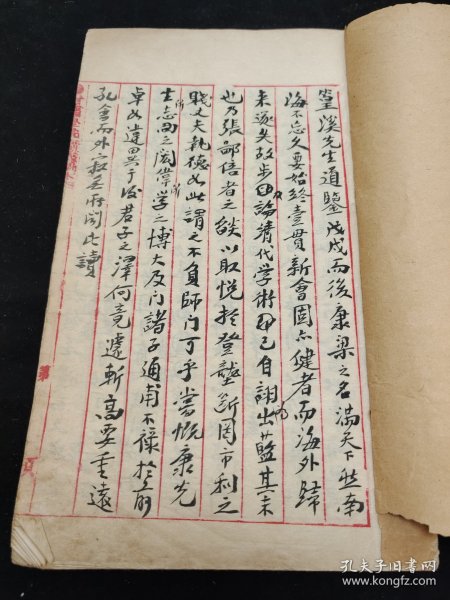 篁溪先生道鑒戊戌而後康梁之名滿天下然南
海不忘久要始終壹貫新會固亦健者而海外歸
來遽失故步論清代學術已自詡出藍其實
也乃張部倍者之以取悅於登壟斷罔市利之
賤丈夫執德如此謂之不負師門可乎嘗慨康先
生志向之閎偉學之博大及门諸子通甫不祿於前
卓如違畔於後君子之澤何竟遽斬高要重遠
孔會而外寂無所聞比讀
孔夫子旧书网
www.kongfz.com